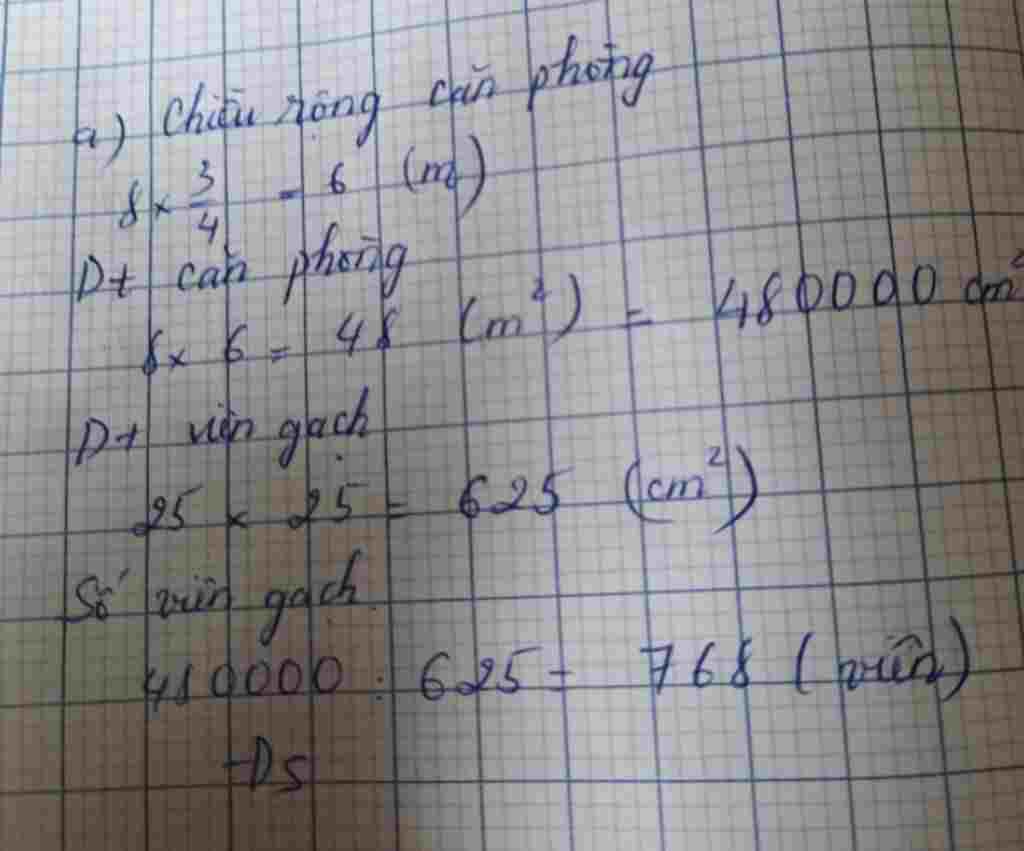 a) Chiều rộng căn phòng
8 × 3/4 = 6 (m)
Dt căn phòng
8 × 6 = 48 (m²) = 480000 cm²
Dt viên gạch
25 × 25 = 625 (cm²)
Số viên gạch
480000 : 625 = 768 (viên)
Đs